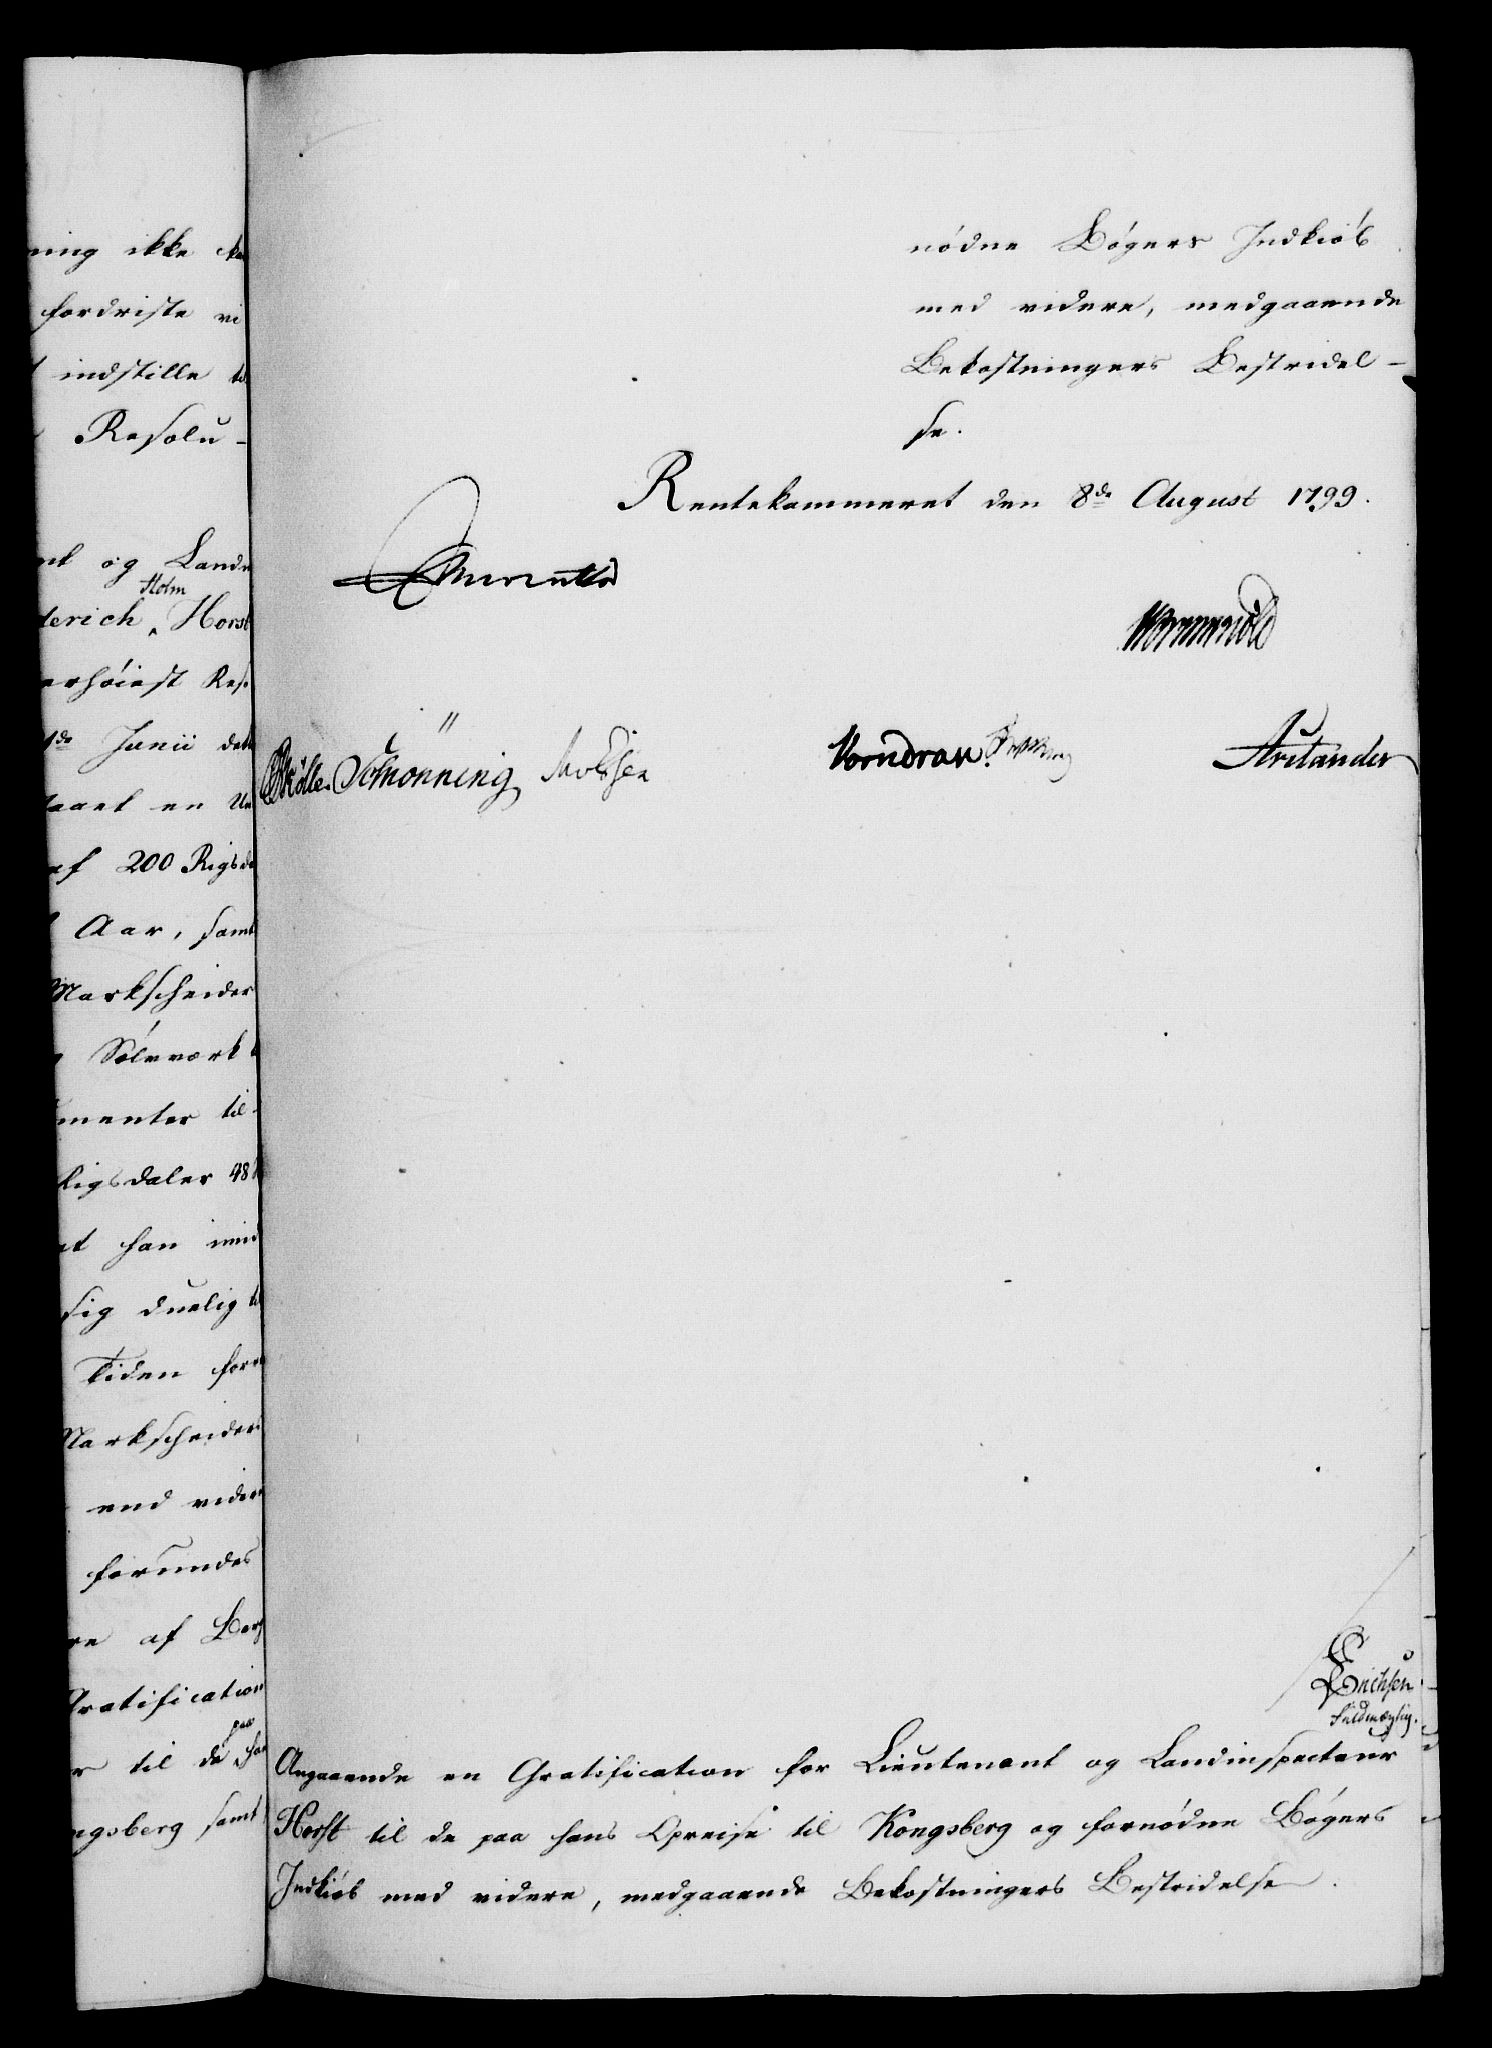 ning ikke
fordriste vi
indstille
Resolu-
og Land
Holm
derich Horst
erhöiest Res
Junii
en
af 200 Rigsd
Aar, samt
Markscheider
Sölvværk
menter til-
Rigsdaler 48
at han imid
sig duelig
Tiden for
Markscheider
end vider
forundes
re af
Gratification
paa
til de
ngsberg samt
nödne Bögers Indkiöb
med videre, medgaaende
Bekostningers Bestridel-
se.
Rentekammeret den 8de August 1799.
Wormskiold
Schönning
Vorndran.
Arctander
Erichsen
Fuldmægtig.
Angaaende en Gratification for Lieutenant og Landinspecteur
Horst til de paa hans Opreise til Kongsberg og fornödne Bögers
Indkiöb med videre, medgaaende Bekostningers Bestridelse.